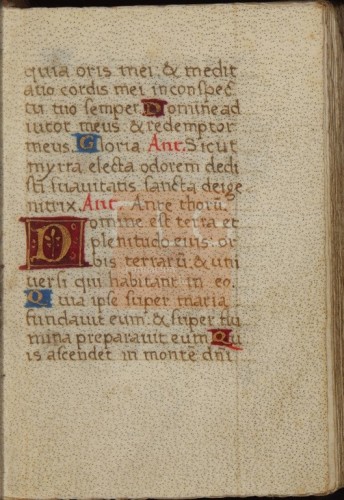 quia oris mei. & medit
atio cordis mei in conspec
tu tuo semper. Domine ad
iutor meus & redemptor
meus. Gloria. Ant. Sicut
myrra electa odorem dedi
sti suauitatis sancta dei ge
nitrix. Ant. Ante thorū.
Domine est terra et
plenitudo eius: or
bis terrarū & uni
uersi qui habitant in eo.
Quia ipse super maria
fundauit eum. & super flu
mina preparauit eum. Qu
is ascendet in montē dn̄i